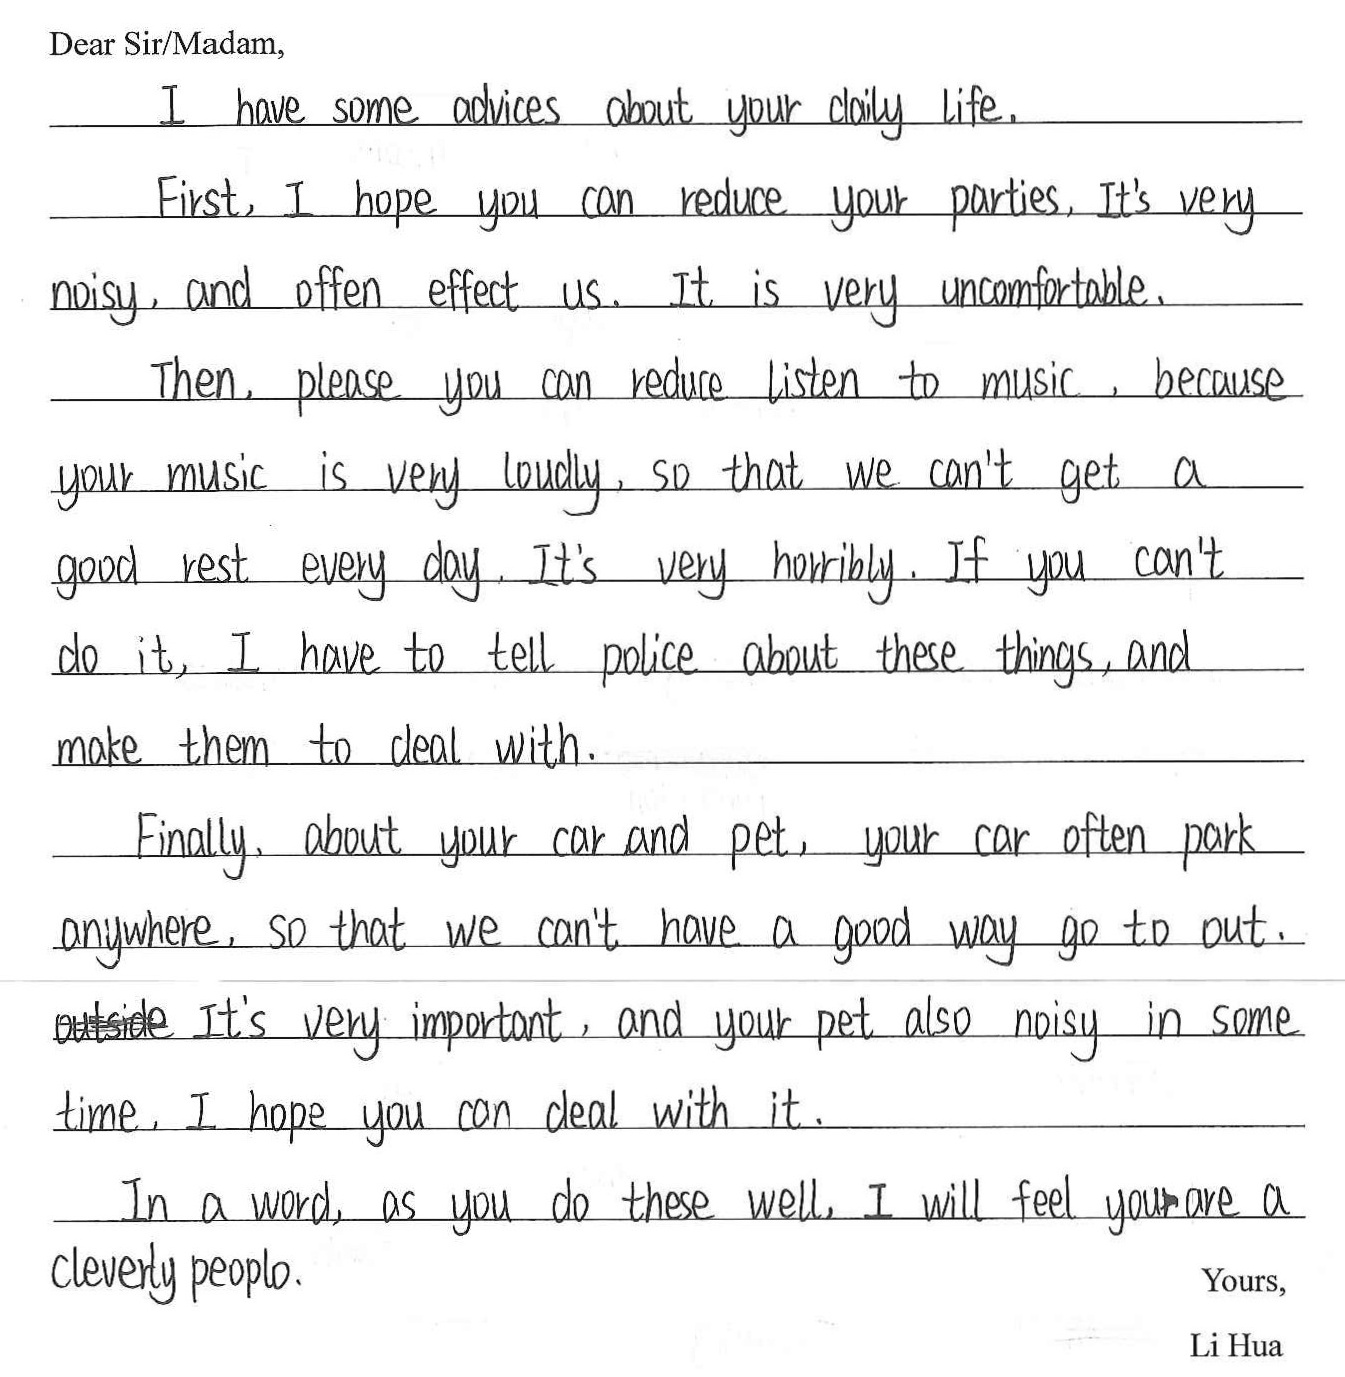 Dear Sir/Madam,
I have some advices about your daily life.
First, I hope you can reduce your parties, It's very
noisy, and offen effect us. It is very uncomfortable.
Then, please you can reduce listen to music, because
your music is very loudly, so that we can't get a
good rest every day. It's very horribly. If you can't
do it, I have to tell police about these things, and
make them to deal with.
Finally, about your car and pet, your car often park
anywhere, so that we can't have a good way go to out.
It's very important, and your pet also noisy in some
time, I hope you can deal with it.
In a word, as you do these well, I will feel you are a
cleverly peoplo.
Yours,
Li Hua